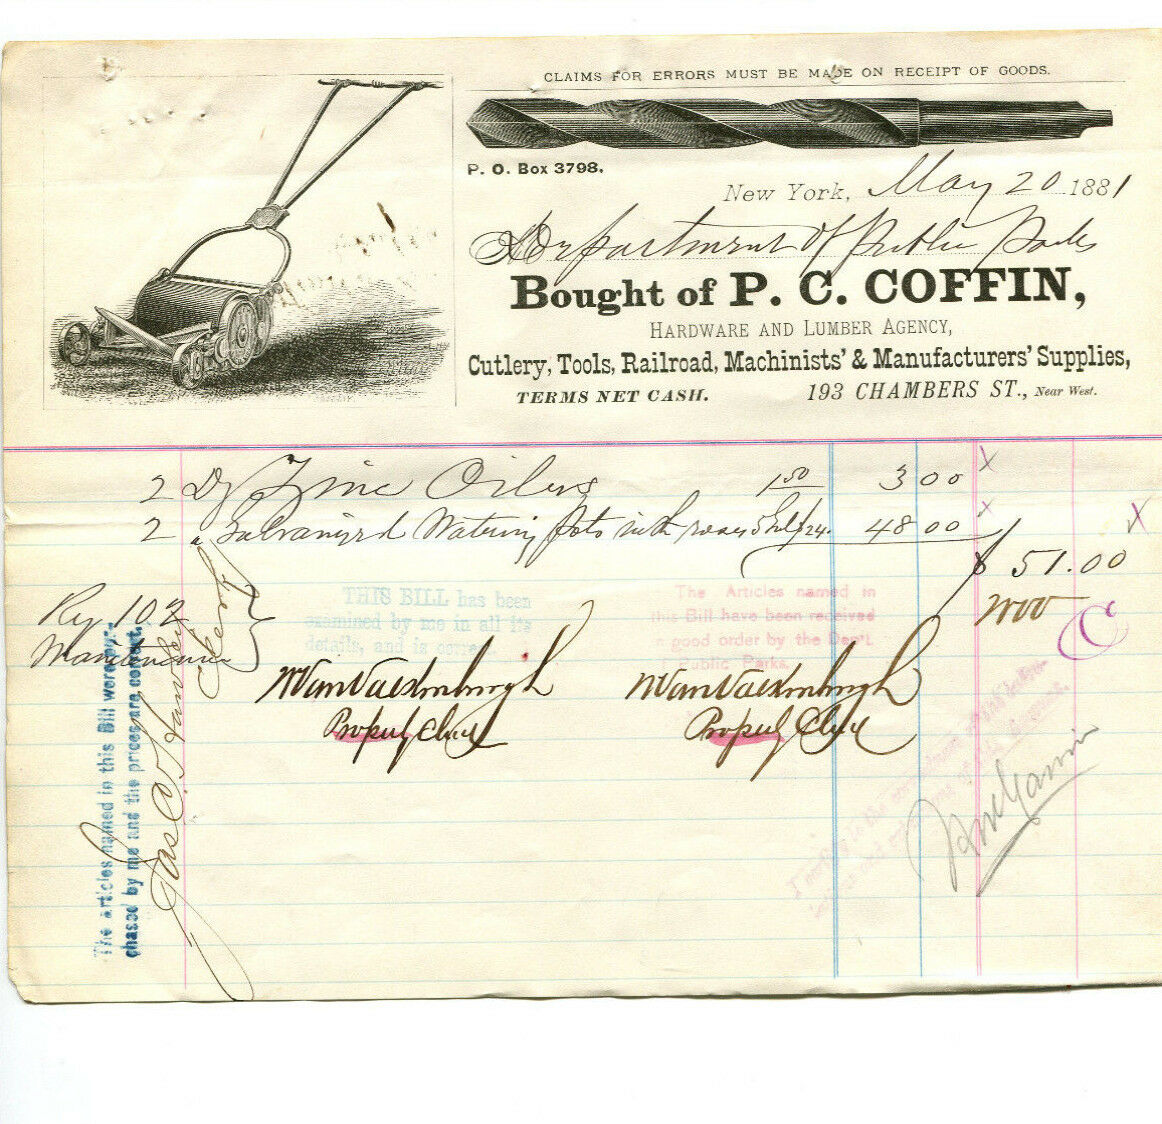 CLAIMS FOR ERRORS MUST BE MADE ON RECEIPT OF GOODS.
P. O. Box 3798.
New York, May 20 1881
Department of Public Parks
Bought of P. C. COFFIN,
HARDWARE AND LUMBER AGENCY,
Cutlery, Tools, Railroad, Machinists' & Manufacturers' Supplies,
TERMS NET CASH. 193 CHAMBERS ST., Near West.
2 Dz Zinc Oilers 1.50 3 00 X
2 " Galvanized Watering Pots with roses 24. 48 00 X
$ 51.00 X
Rq 102
Clerk
THIS BILL has been
examined by me in all its
details, and is correct.
The Articles named in
this Bill have been received
in good order by the Dep't.
of Public Parks.
W Van Valkenburgh
Property Clerk
W Van Valkenburgh
Property Clerk
The articles named in this Bill were pur-
chased by me and the prices are correct.
Jas. C. Hawley